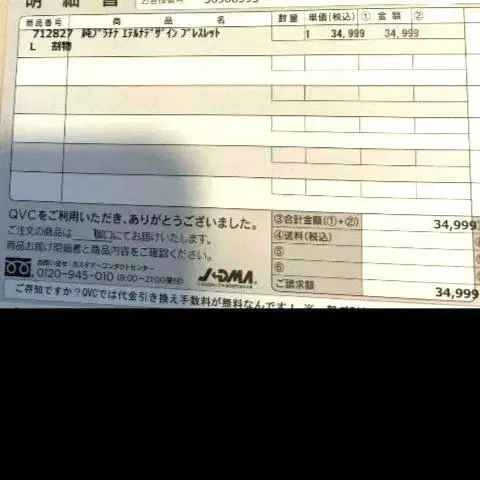 明細書
商品番号 商品名 数量 単価(税込) ① 金額 ②
712827 純プラチナ エテルナデザイン ブレスレット 1 34,999 34,999
L 割物
QVCをご利用いただき、ありがとうございました。
ご注文の商品は 個口にてお届けいたします。
商品お届け明細書と商品内容をご確認ください。
お問い合せ:カスタマーコンタクトセンター
0120-945-010 (8:00~21:00受付)
JADMA
③合計金額(①+②) 34,999
④送料(税込)
⑤
⑥
ご請求額 34,999
ご存知ですか?QVCでは代金引き換え手数料が無料なんです!